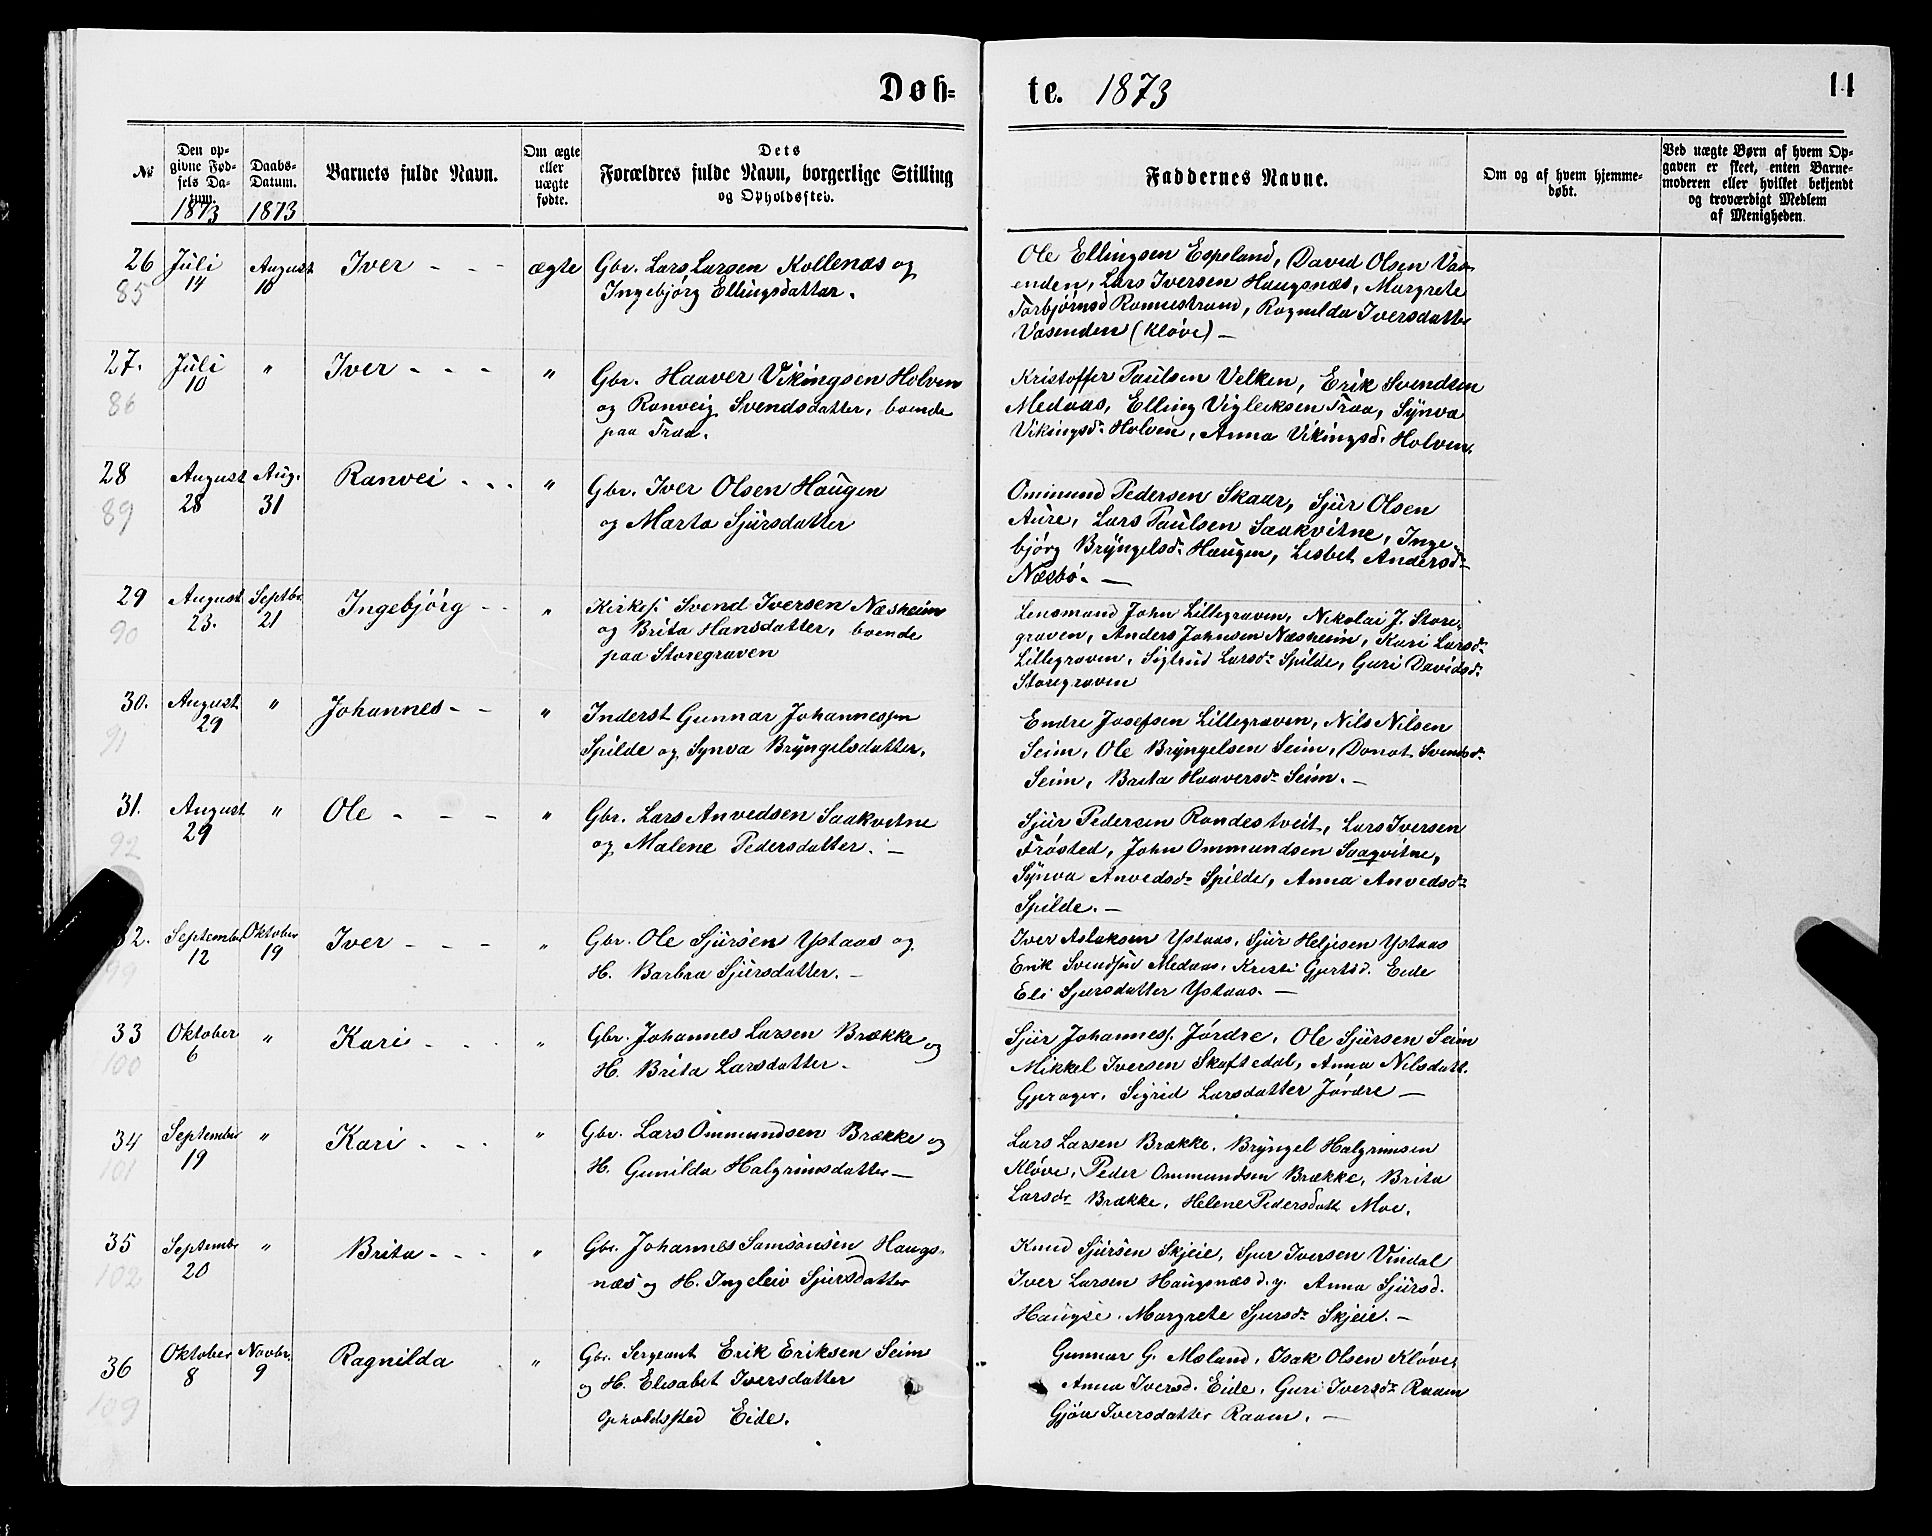 Døb=
te. 1873
11
No
Den op-
givne Fød-
sels Da-
tum.
1873
Daabs-
Datum.
1873
Barnets fulde Navn.
Om ægte
eller
uægte
fødte.
Dets
Forældres fulde Navn, borgerlige Stilling
og Opholdssted.
Faddernes Navne.
Om og af hvem hjemme-
døbt.
Ved uægte Børn af hvem Op-
gaven er skeet, enten Barne-
moderen eller hvilket bekjendt
og troværdigt Medlem
af Menigheden.
26 Juli August Iver - - - ægte Gbr. Lars Larsen Kollenæs og
85 14 10 Ingebjørg Ellingsdatter.
Ole Ellingsen Espeland, David Olsen Vas-
enden, Lars Iversen Haugsnæs, Margrete
Torbjørnsd Ronnestrand, Ragnilda Iversdatter
Vasenden (Kløve) —
27. Juli " Iver - - - " Gbr. Haaver Vikingsen Holven
86 10 og Ranveig Svendsdatter, boende
paa Traa.
Kristoffer Paulsen Velken, Erik Svendsen
Medaas, Elling Vigleiksen Traa, Synva
Vikingsd. Holven, Anna Vikingsd. Holven.
28 August Aug. Ranvei - - - " Gbr. Iver Olsen Haugen
89 28 31 og Marta Sjursdatter
Ommund Pedersen Skaar, Sjur Olsen
Aure, Lars Paulsen Saakvitne, Inge-
bjørg Bryngelsd. Haugen, Lisbet Andersd.
Næsbø. —
29 August Septbr. Ingebjørg - - " Kirkes. Svend Iversen Næsheim
90 23. 21 og Brita Hansdatter, boende
paa Storegraven
Lensmand John Lillegraven, Nikolai J. Store-
graven, Anders Johnsen Næsheim, Kari Larsd.
Lillegraven, Sigtrud Larsd. Spilde, Guri Davidsd.
Storegraven
30. August " Johannes - - " Inderst Gunnar Johannessen
91 29 Spilde og Synva Bryngelsdatter.
Endre Josefsen Lillegraven, Nils Nilsen
Seim, Ole Bryngelsen Seim, Donat Svendsd.
Seim, Brita Haaversd. Seim. —
31. August " Ole - - - " Gbr. Lars Anvedsen Saakvitne
92 29 og Malene Pedersdatter. —
Sjur Pedersen Rondestveit, Lars Iversen
Trøsted, John Ommundsen Saagvitne,
Synva Anvedsd. Spilde, Anna Anvedsd.
Spilde. —
32. September Oktober Iver - - - " Gbr. Ole Sjursen Ystaas og
99 12 19 H. Barbra Sjursdatter. —
Iver Aslaksen Ystaas, Sjur Heljesen Ystaas
Erik Svendsen Medaas, Kristi Gjertsd. Eide
Eli Sjursdatter Ystaas. —
33 Oktober " Kari - - - " Gbr. Johannes Larsen Brække og
100 6 H. Brita Larsdatter. —
Sjur Johanness. Jördre, Ole Sjursen Seim
Mikkel Iversen Skaftedal, Anna Nilsdatt.
Gjerager, Sigrid Larsdatter Jördre —
34 September " Kari - - - " Gbr. Lars Ommundsen Brække og
101 19 H. Gunilda Halgrimsdatter —
Lars Larsen Brække, Bryngel Halgrimsen
Kløve, Peder Ommundsen Brække, Brita
Larsdr Brække, Helene Pedersdatt Moe.
35 Septembr " Brita - - - " Gbr. Johannes Samsonsen Haugs-
102 20 næs og H. Ingeleiv Sjursdatter
Knud Sjursen Skjeie, Sjur Iversen Vindal
Iver Larsen Haugsnæs d.y. Anna Sjursd.
Haugse. Margrete Sjursd. Skjeie. —
36 Oktober Novbr. Ragnilda " Gbr. Sergeant Erik Eriksen Seim
109 8 9 og H. Elisabet Iversdatter
Opholdssted Eide.
Gunnar G. Mæland, Isak Olsen Kløve,
Anna Iversd. Eide, Guri Iversd. Raam
Gjøa Iversdatter Raam. —